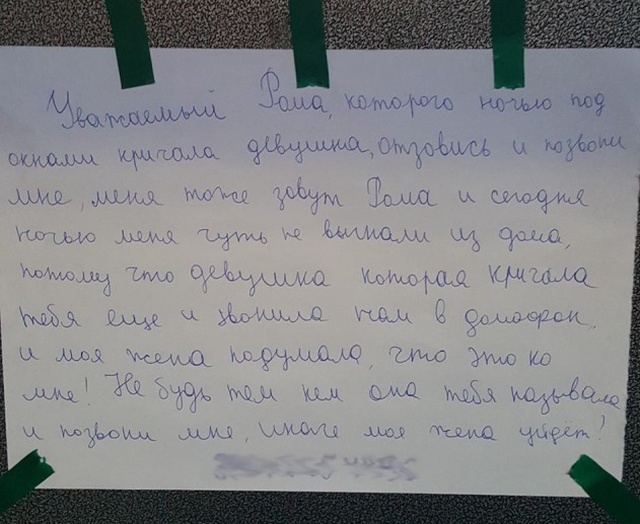 Уважаемый Рома, которого ночью под
окнами кричала девушка, отзовись и позвони
мне, меня тоже зовут Рома и сегодня
ночью меня чуть не выгнали из дома,
потому что девушка которая кричала
тебя еще и звонила нам в домофон
и моя жена подумала, что это ко
мне! Не будь тем кем она тебя называла
и позвони мне, иначе моя жена уйдёт!